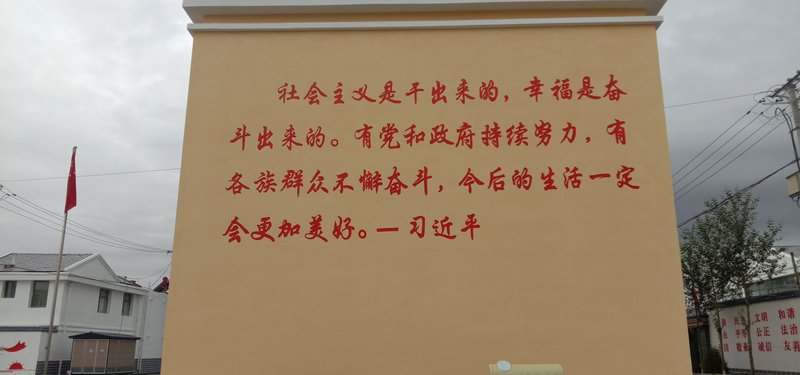 社会主义是干出来的，幸福是奋
斗出来的。有党和政府持续努力，有
各族群众不懈奋斗，今后的生活一定
会更加美好。—习近平
文明 和谐
平等 公正 法治
敬业 诚信 友善